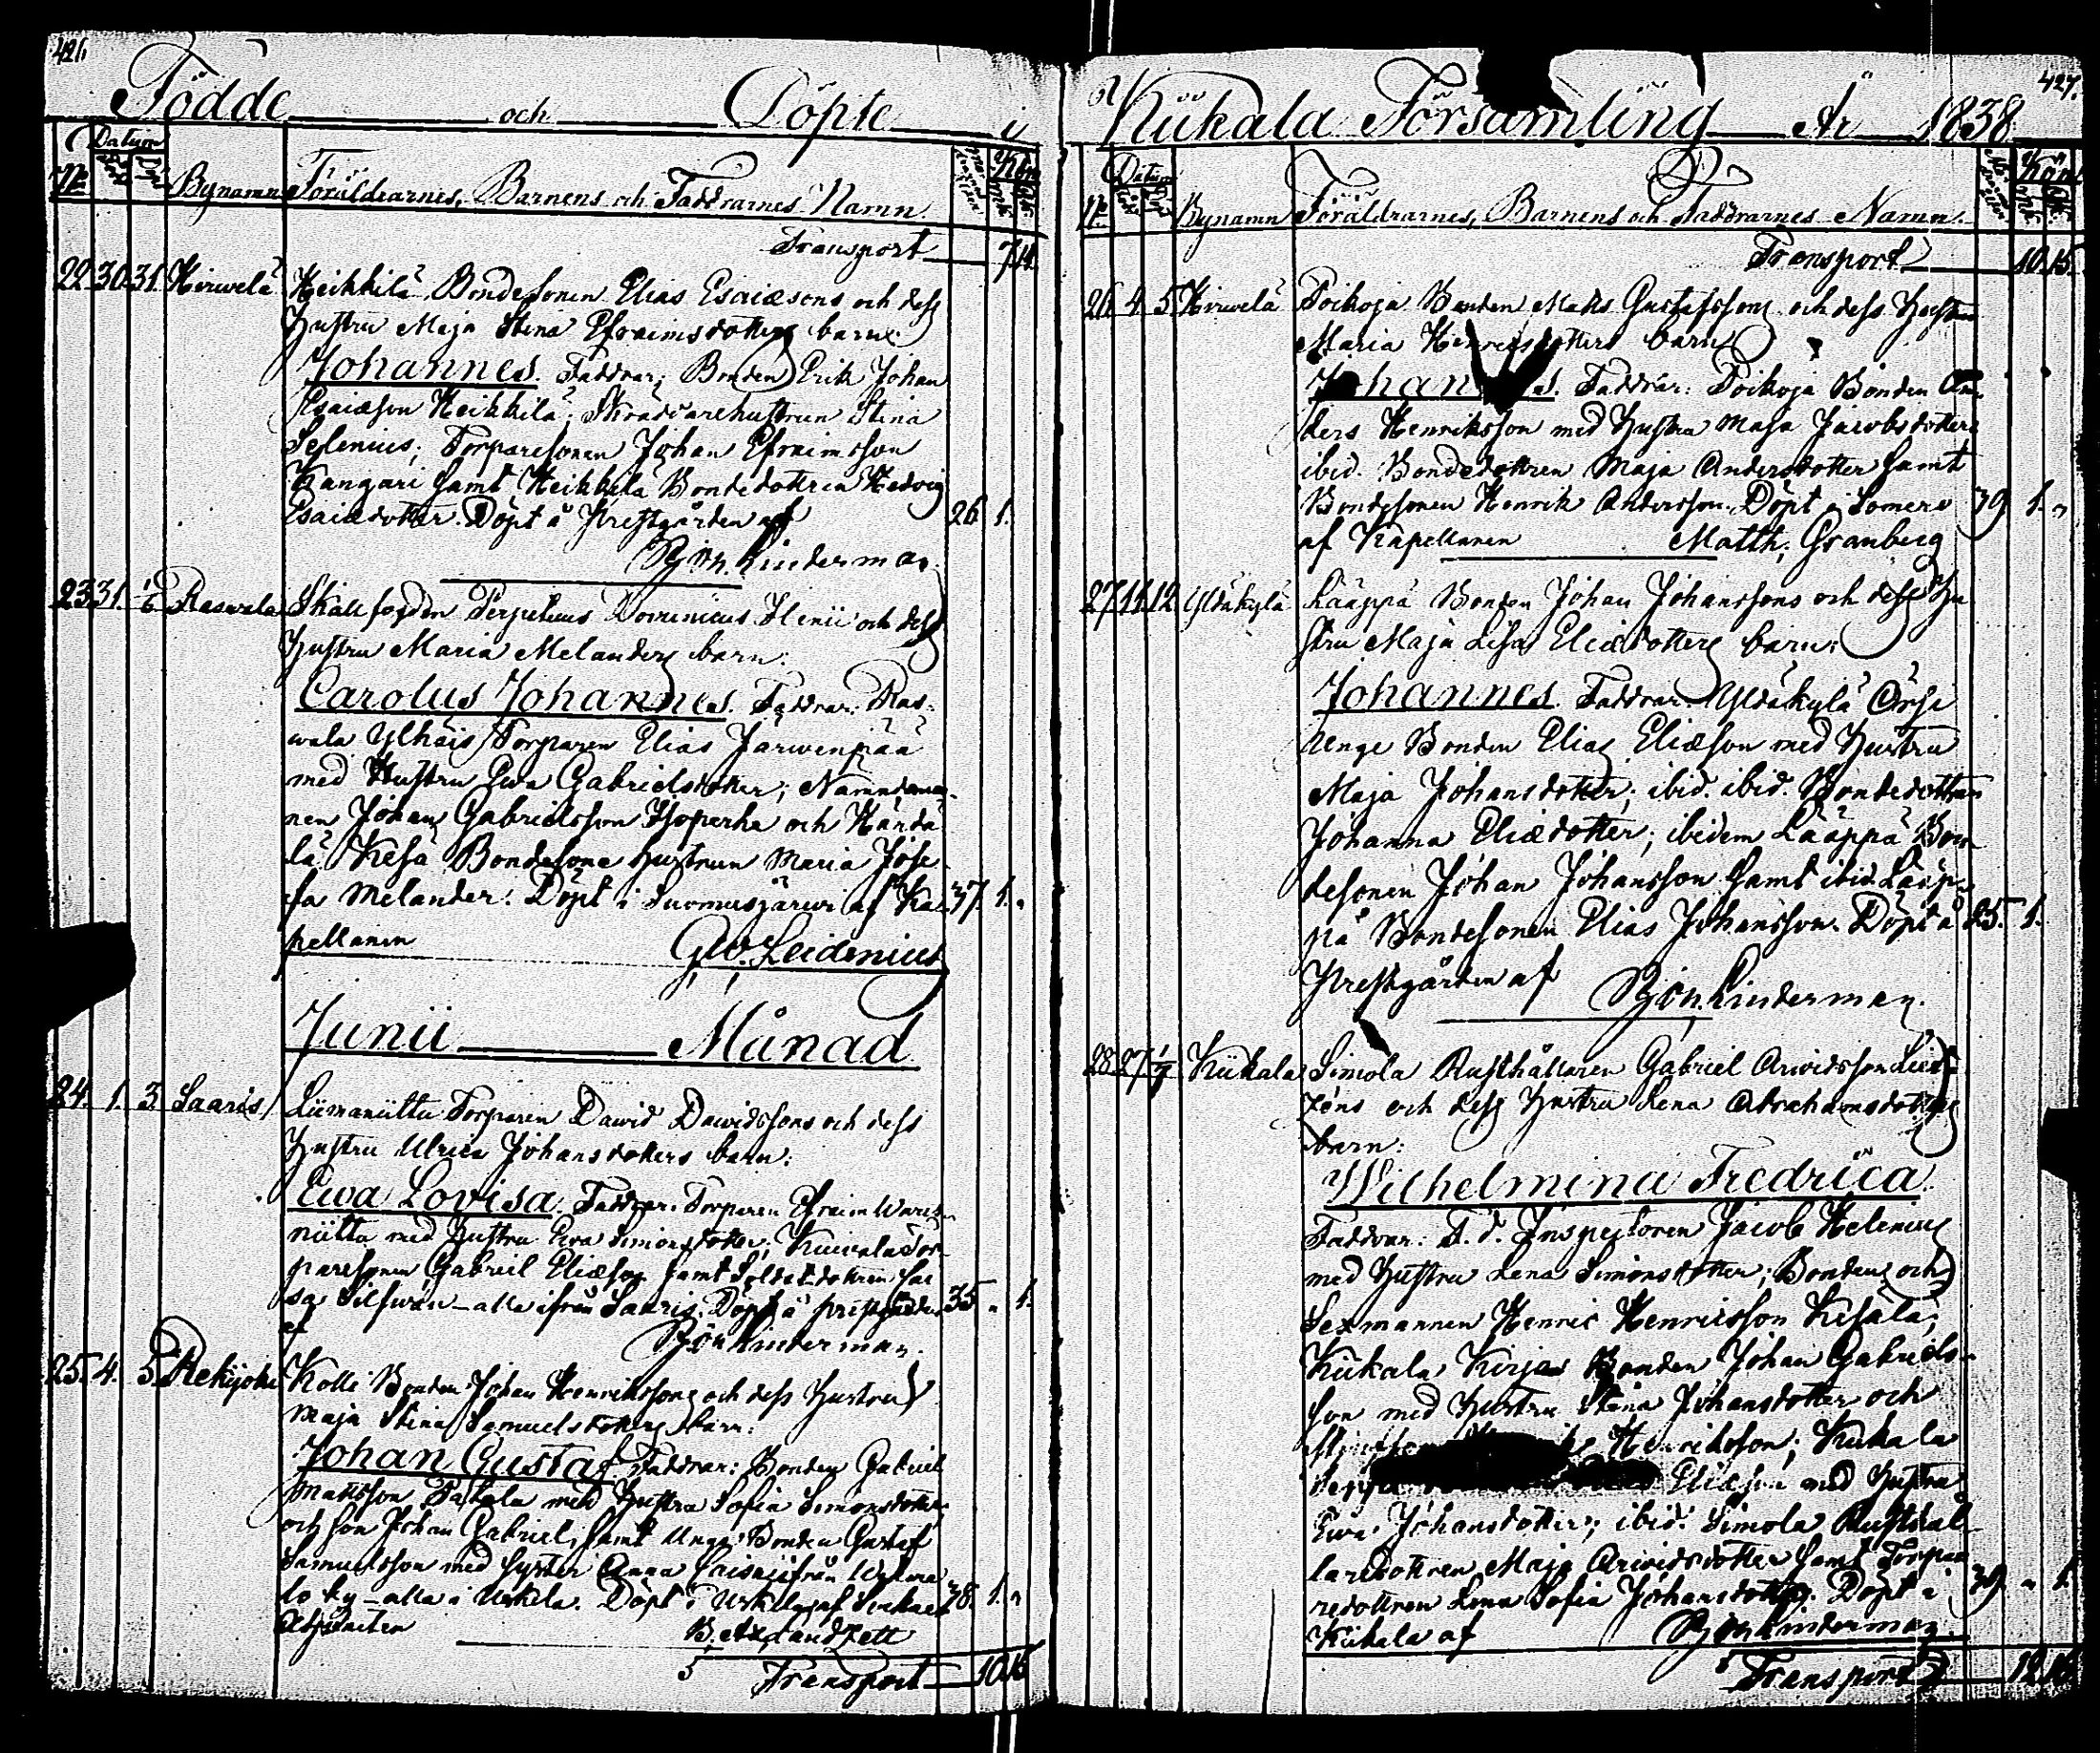 426.
Födde och Döpte i
Datum
No Född Döpt Bynamn Föräldrarnes, Barnens och Faddrarnes Namn Kön
Transport 7. 14.
22. 30. 31. Hirwelä Heikkilä Bondesonen Elias Esaiæsons och dess
Hustru Maja Stina Efraimsdotters barn:
Johannes. Faddrar; Bonden Erik Johan
Esaiæson Heikkilä; Skräddarehustrun Stina
Selenius; Torparesonen Johan Efraimsson
Kangari samt Heikkilä Bondedottren Hedvig
Esaiædotter. Döpt å Prestgården af 26 1.
Bj:ön. Linderman.
23. 31. 1/6 Raswala Skallfogden Perpetuus Dominicus Ilenii och dess
Hustru Maria Melanders barn:
Carolus Johannes. Faddrar: Ras-
wala Ylhäis Torparen Elias Järwenpää
med Hustru Ewa Gabrielsdotter; Nämndeman-
nen Johan Gabrielsson Isoperhe och Härdä-
lä Kesä Bondesone hustrun Maria Jose-
fa Melander. Döpt i Suomusjärwi af Ka- 37. 1. "
pellanen G. W. Leidenius
Junii Månad
24. 1. 3. Saaris Liimaniittu Torparen Dawid Dawidssons och dess
Hustru Ulrica Johansdotters barn:
Ewa Lovisa. Faddrar. Torparen Efraim Waris-
niittu med Hustru Ewa Simonsdotter; Kuiwala Tor-
paresonen Gabriel Eliæson samt Soldatdottren Cai-
sa Silfwan - alla ifrån Saaris. Döpt å Prestgården 35 " 1.
af Bjön Linderman.
25. 4. 5. Rekijoki Kolli Bonden Johan Henrikssons och dess Hustru
Maja Stina Samuelsdotters barn:
Johan Gustaf. Faddrar: Bonden Gabriel
Mattsson Takala med Hustru Sofia Simonsdotter
och son Johan Gabriel, samt Unga Bonden Gustaf
Samuelsson med syster Anna Caisa ifrån
by - alla i Uskela. Döpt i Uskela af 28. 1. "
Adjuncten B. Ax. Landzett
Transport 10. 15
427.
Kiikala Församling År 1838.
Datum
No Född Döpt Bynamn Föräldrarnes, Barnens och Faddrarnes Namn. Kön
Transport 10. 15.
26. 4. 5. Hirwelä Poikoja Bonden Matts Gustafssons och dess Hustru
Maria Henriksdotters barn
Johannes. Faddrar: Poikoja Bonden An-
ders Henriksson med Hustru Maja Jacobsdotter
ibid. Bondedottren Maja Andersdotter samt
Bondesonen Henrik Andersson. Döpt i Somero 39 1. "
af Kapellanen Matth. Granberg
27. 11. 12. Yldäkylä Lääppä Bonden Johan Johanssons och dess Hu-
stru Maja Lisa Eliædotters barn:
Johannes. Faddrar. Yldäkylä Orsi
nenge Bonden Elias Eliæson med Hustru
Maja Johansdotter; ibid. ibid. Bondedottren
Johanna Eliædotter; ibidem Lääppä Bon-
desonen Johan Johansson samt ibid Lääp-
pä Bondesonen Elias Johansson. Döpt å 25. 1.
Prestgården af Bjön Linderman.
28. 27. 1/7 Kiikala Simola Rusthållaren Gabriel Arwidsson
zéns och dess Hustru Lena Abrahamsdotters
barn:
Wilhelmina Fredrica
Faddrar: F. d. Inspectoren Jacob Helenius
med Hustru Lena Simonsdotter; Bonden och
Sexmannen Henric Henricsson Kesälä;
Kiikala Kirjas Bonden Johan Gabriels-
son med Hustru Stina Johansdotter och
Henriksson; Kiikala
Seppä Eliæson med Hustru
Ewa Johansdotter; ibid. Simola Rusthål-
laredottren Maja Arwidsdotter samt Torpa-
redottren Lena Sofia Johansdotter. Döpt i 39. " 1.
Kiikala af Bjön Linderman.
Transport 12. 16